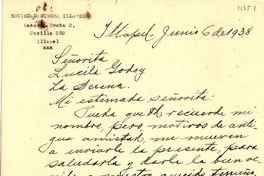 SOCIEDAD MINERA ILLAPEL
Casilla 292
Illapel
Illapel, Junio 6 de 1938
Señorita
Lucila Godoy
La Serena.
Mi estimada señorita:
Puede que Ud recuerde mi
nombre, pero motivos de anti-
gua amistad, me mueven
a enviarle la presente, para
saludarla y darle la bienve-
nida a nuestro querido terruño,